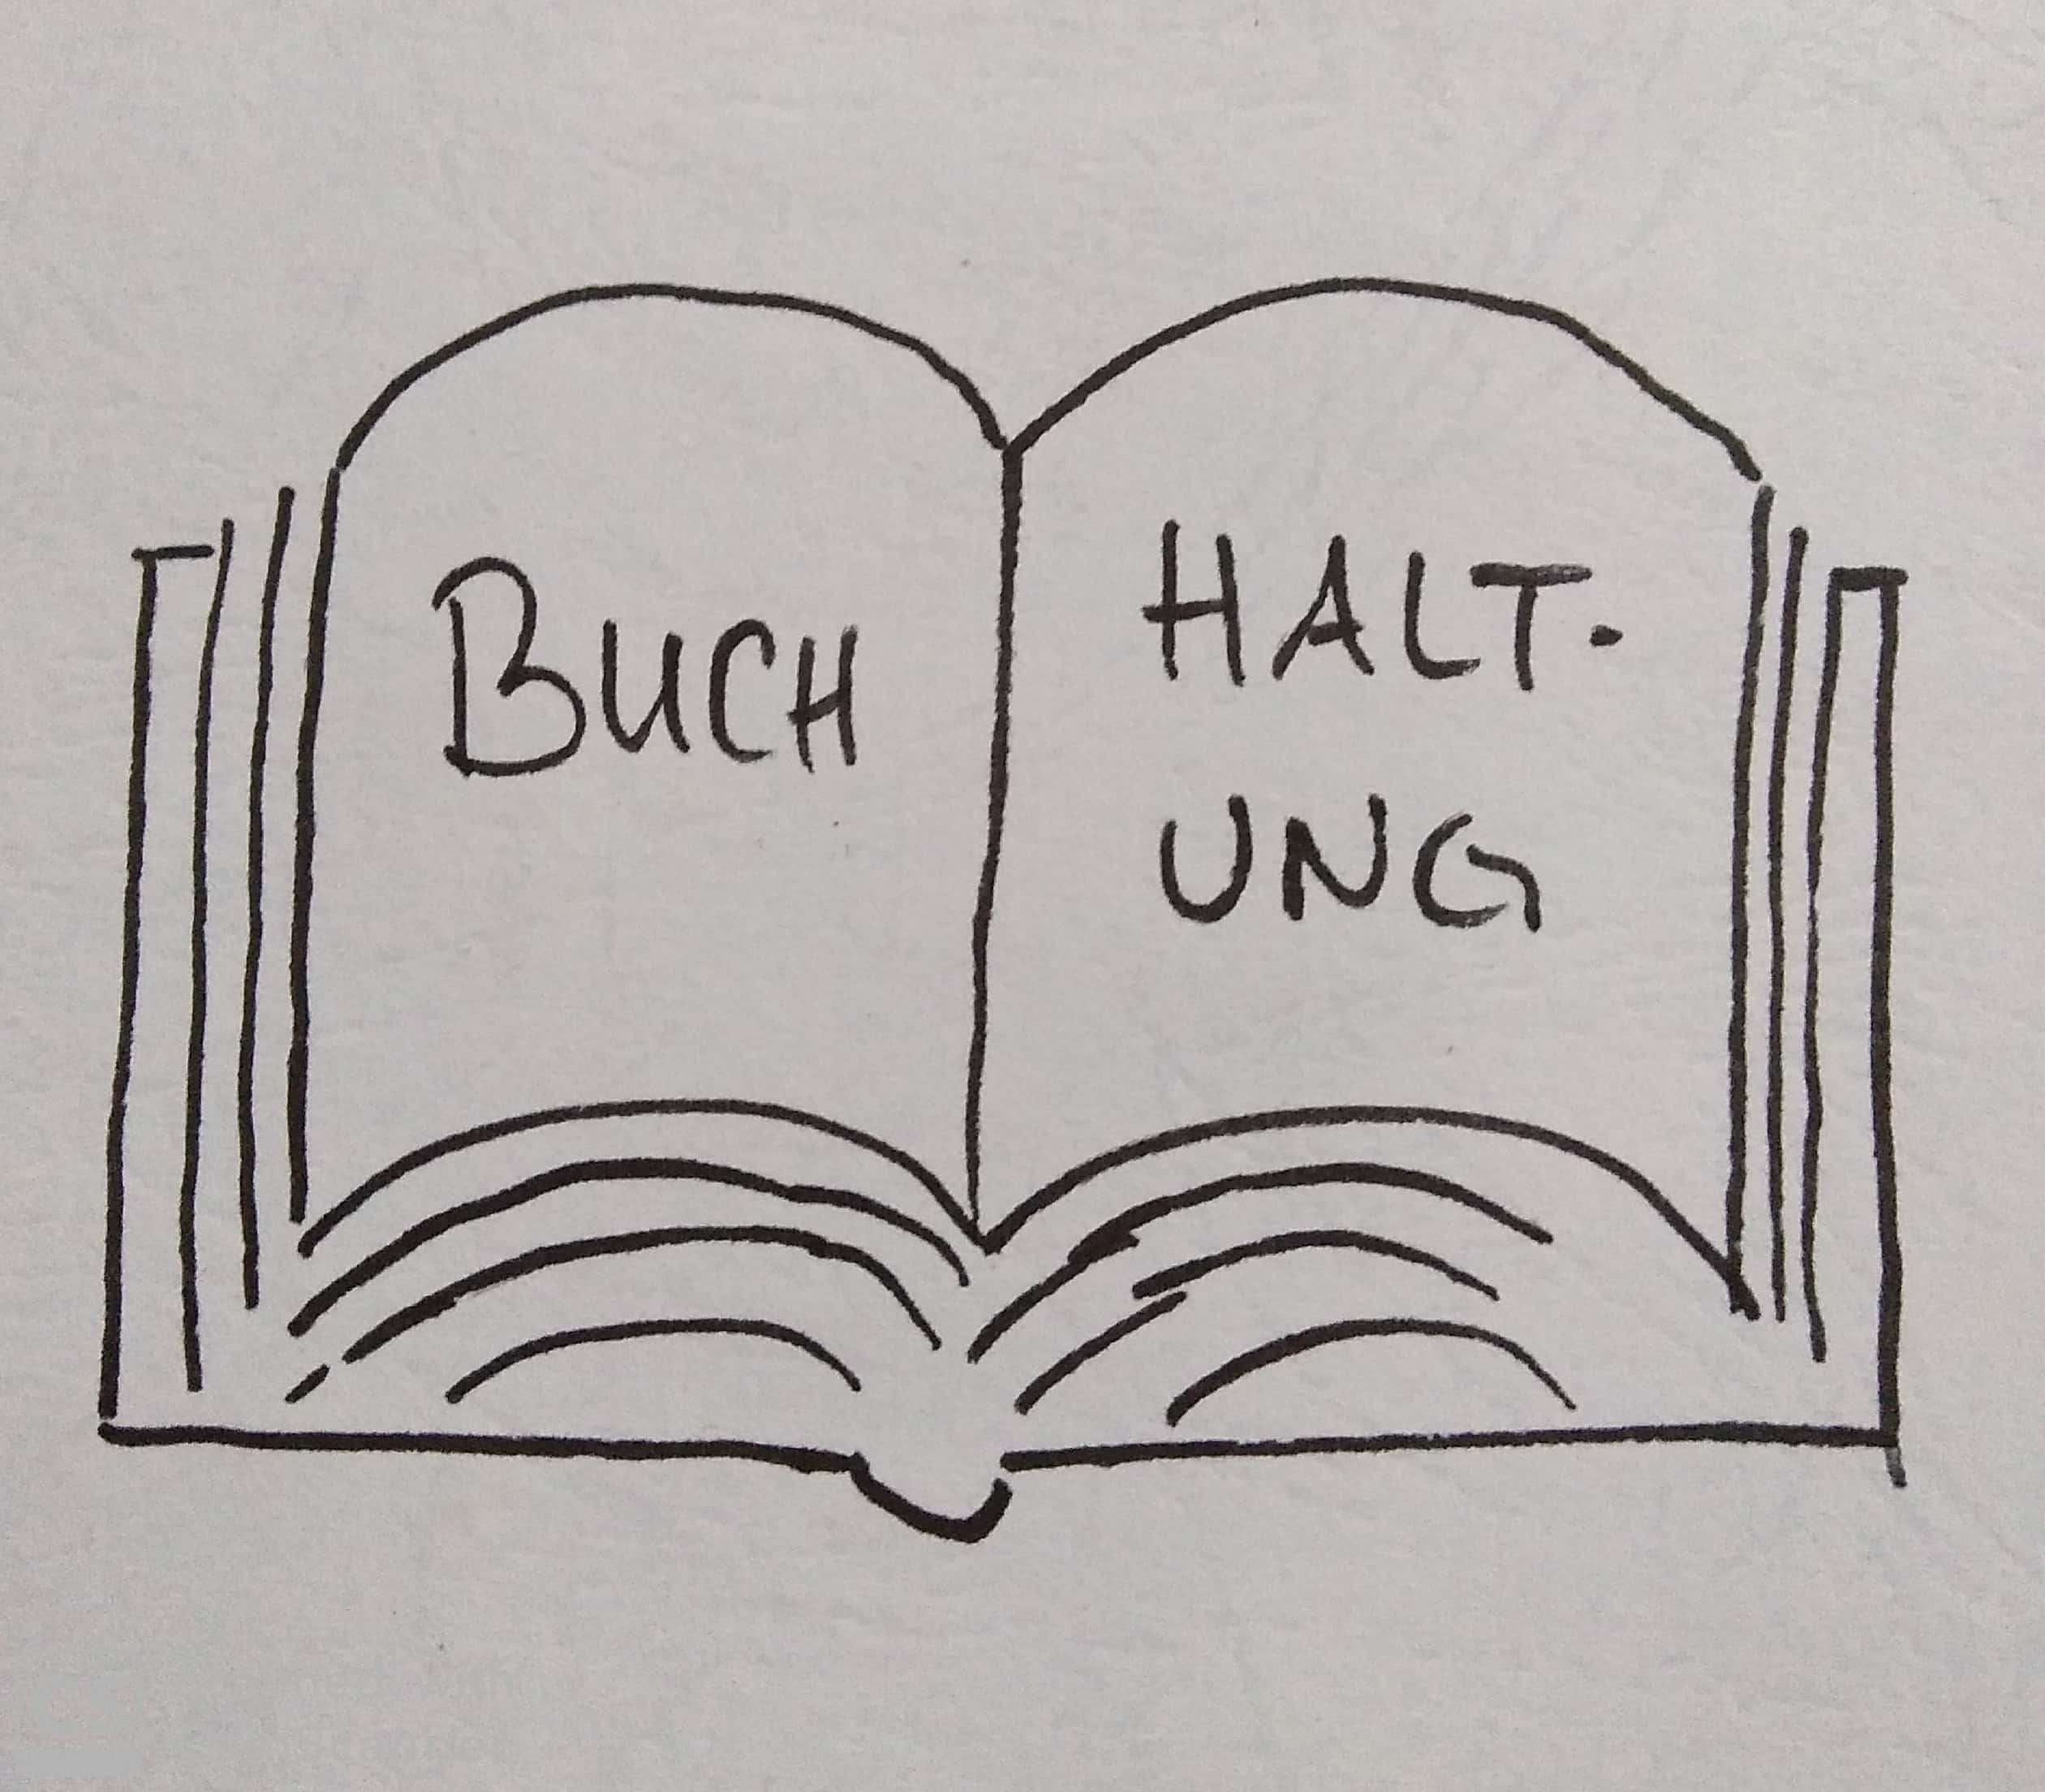 BUCH
HALT-
UNG